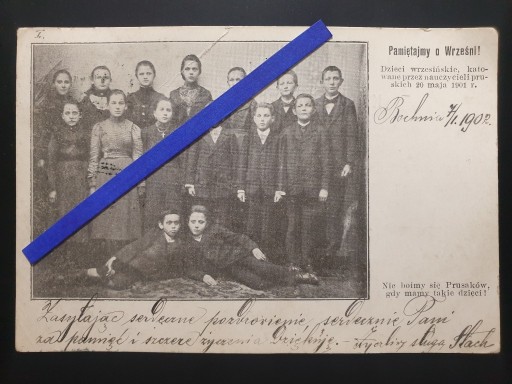 Pamiętajmy o Wrześni!
Dzieci wrzesińskie, kato-
wane przez nauczycieli pru-
skich 20 maja 1901 r.
Bochnia 7/1. 1902.
Nie boimy się Prusaków,
gdy mamy takie dzieci!
Zasyłając serdeczne pozdrowienie, serdecznie Pani
za pamięć i szczere życzenia dziękuję. – Życzliwy sługa Stach